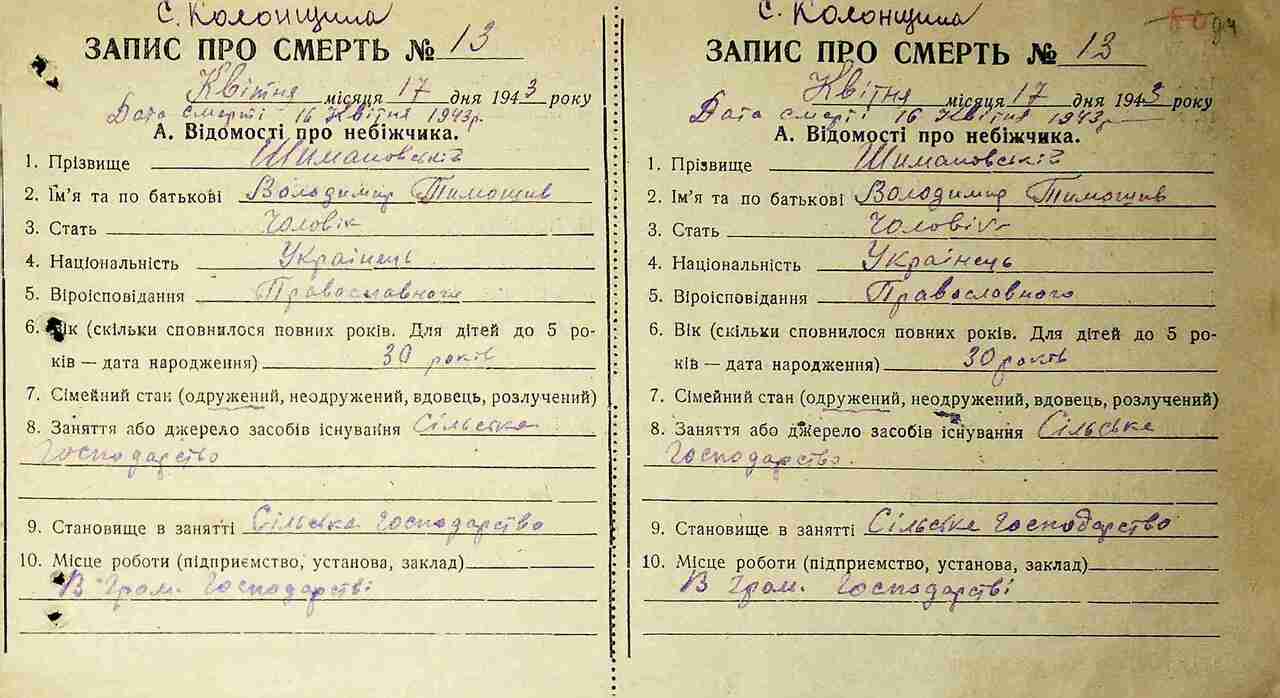 с. Колонщина
ЗАПИС ПРО СМЕРТЬ № 13
Квітня місяця 17 дня 1943 року
Дата смерті 16 Квітня 1943р.
А. Відомості про небіжчика.
1. Прізвище Шимановській
2. Ім'я та по батькові Володимир Тимошив
3. Стать Чоловік
4. Національність Українець
5. Віроісповідання Православного
6. Вік (скільки сповнилося повних років. Для дітей до 5 ро-
ків — дата народження) 30 років
7. Сімейний стан (одружений, неодружений, вдовець, розлучений)
8. Заняття або джерело засобів існування Сільське
Господарство
9. Становище в занятті Сільська Господарство
10. Місце роботи (підприємство, установа, заклад)
В Гром. Господарстві
с. Колонщина
94
ЗАПИС ПРО СМЕРТЬ № 13
Квітня місяця 17 дня 1943 року
Дата смерті 16 Квітня 1943р.
А. Відомості про небіжчика.
1. Прізвище Шимановській
2. Ім'я та по батькові Володимир Тимошив
3. Стать Чоловік
4. Національність Українець
5. Віроісповідання Православного
6. Вік (скільки сповнилося повних років. Для дітей до 5 ро-
ків — дата народження) 30 років
7. Сімейний стан (одружений, неодружений, вдовець, розлучений)
8. Заняття або джерело засобів існування Сільське
Господарство.
9. Становище в занятті Сільське Господарство
10. Місце роботи (підприємство, установа, заклад)
В Гром. Господарстві